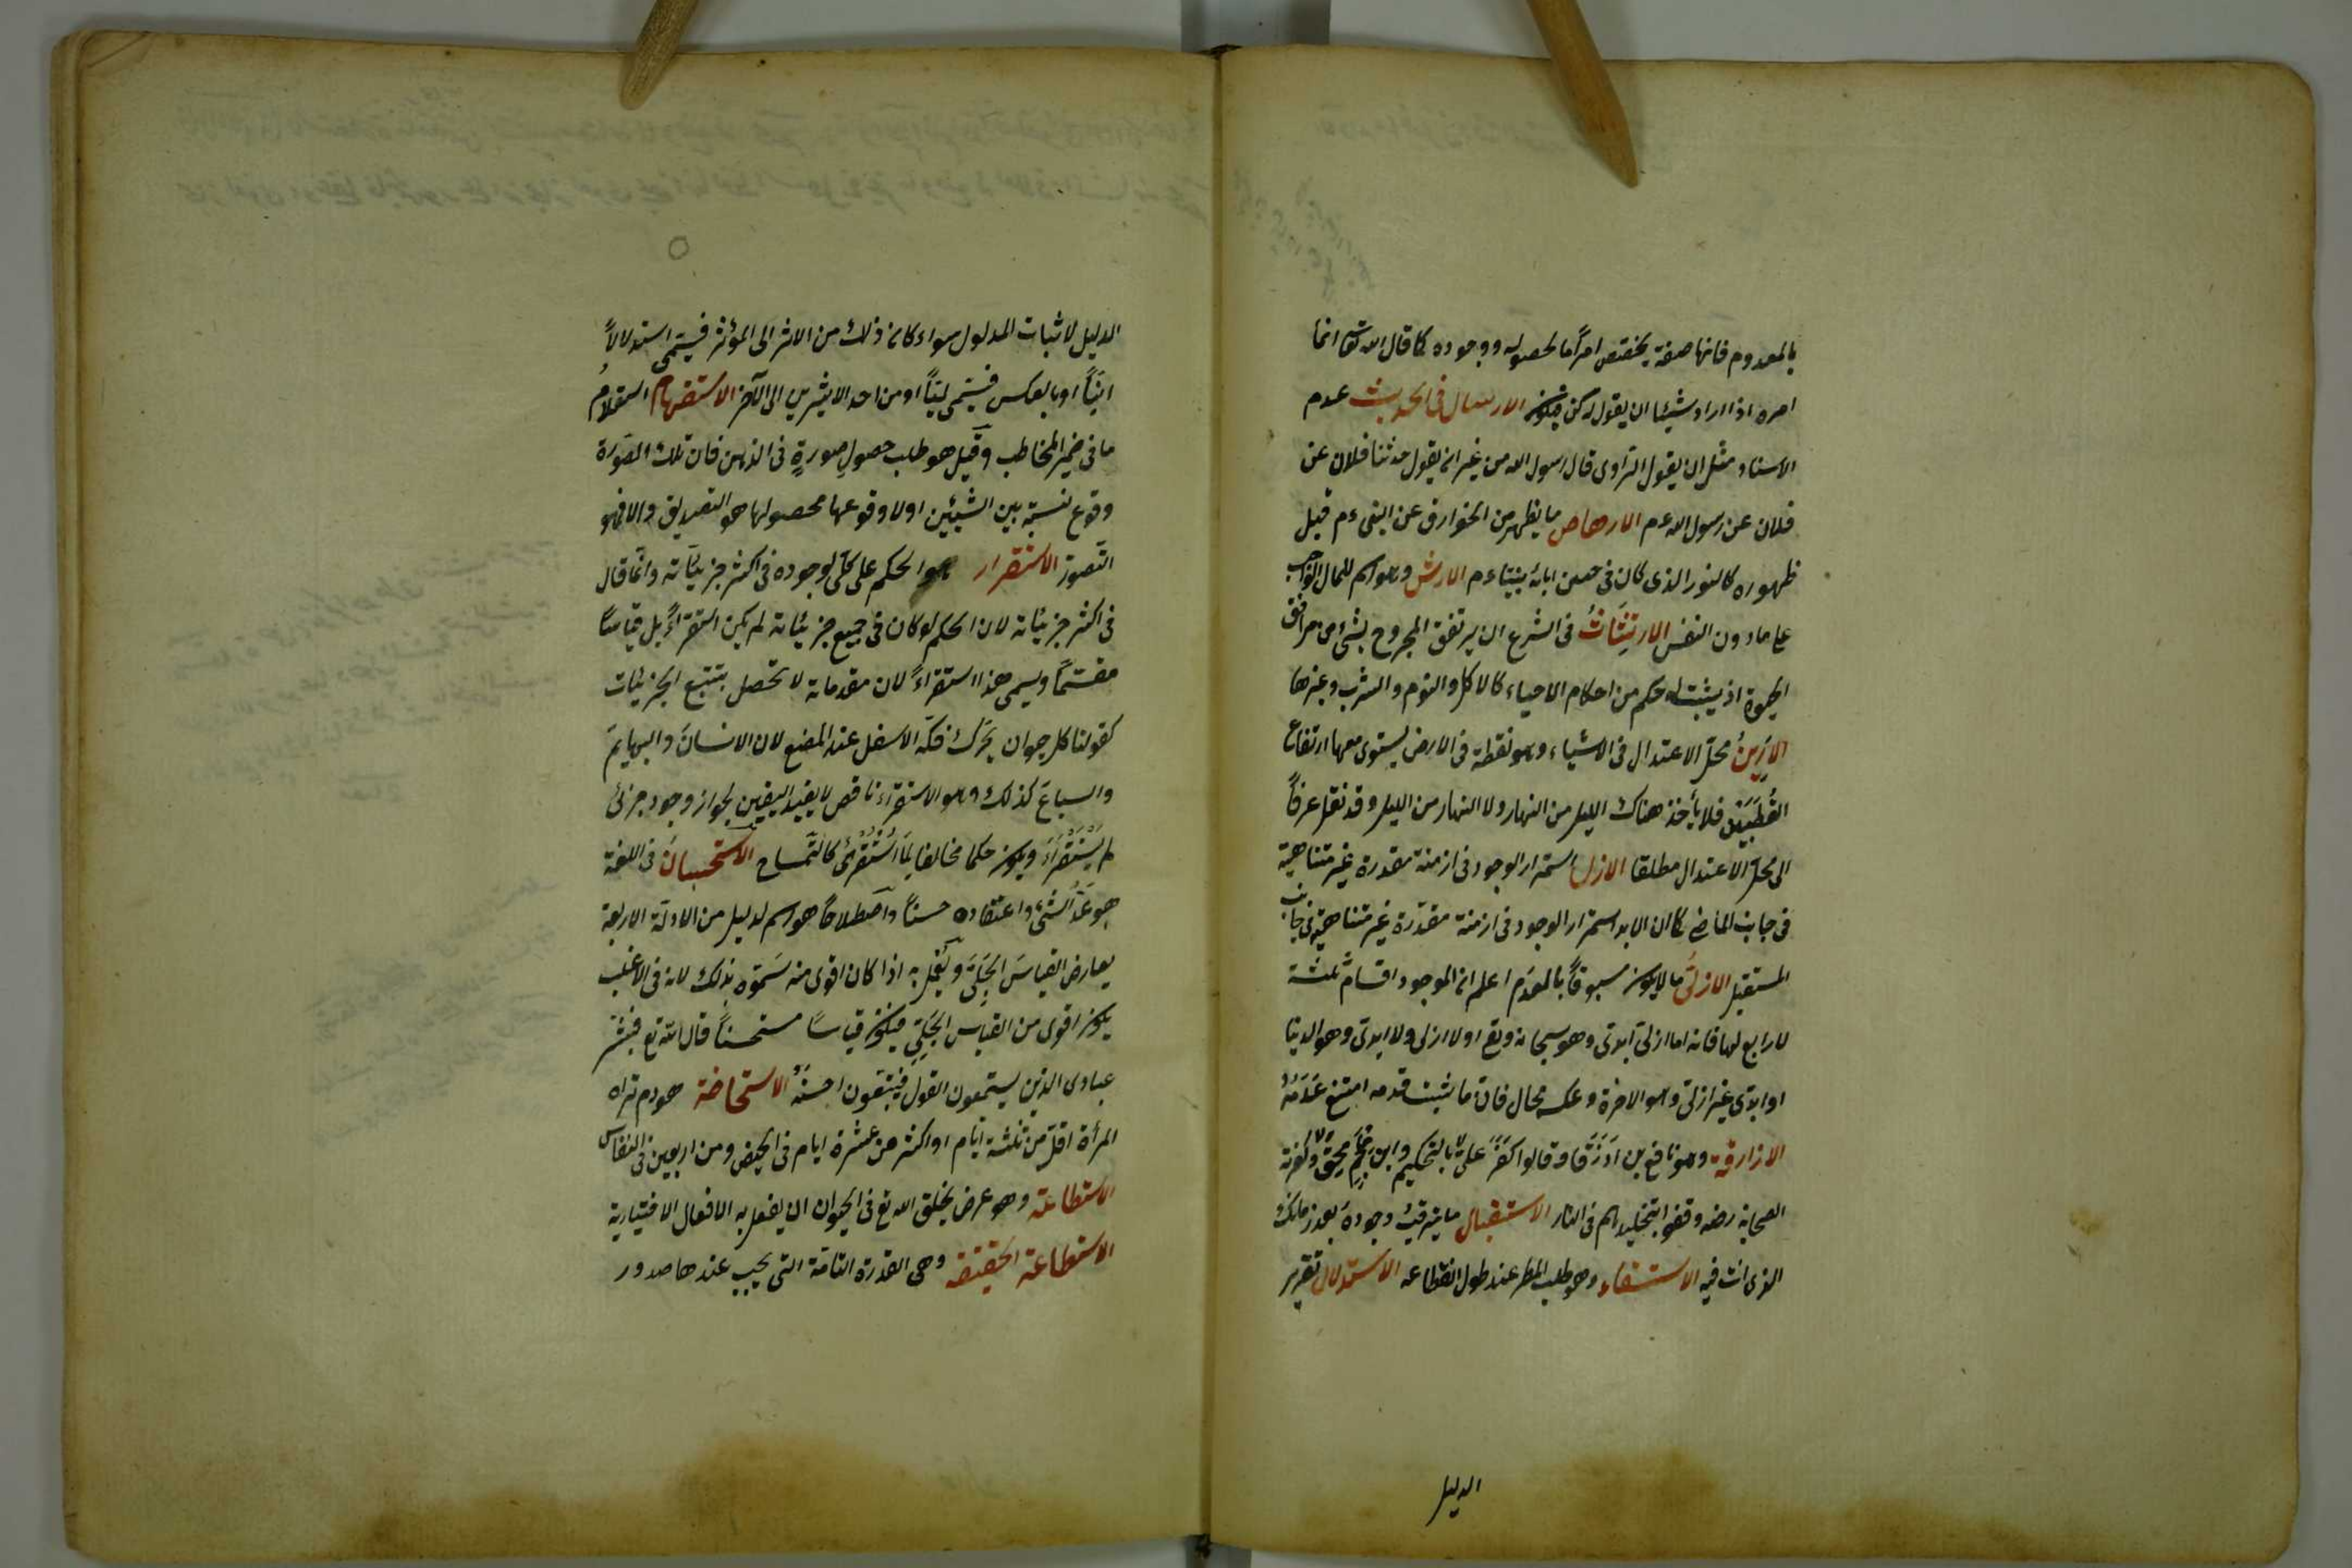 بالمعدوم فانها صفة يختص امرًا ما لحصوله ووجوده كما قال الله تعا انما
امره اذا اراد شيئا ان يقول له كن فيكون الارسال فى الحديث عدم
الاسناد مثل ان يقول الراوى قال رسول الله من غير ان يقول حدثنا فلان عن
فلان عن رسول الله عم الارهاص ما يظهر من الخوارق عن النبى عم قبل
ظهوره كالنور الذى كان فى جبين ابائه نبينا عم الارش وهو اسم للمال الواجب
على ما دون النفس الارتثاث فى الشرع ان يرتفق المجروح بشئ من مرافق
الحيوة اذ يثبت له حكم من احكام الاحياء كالاكل والنوم والشرب وغيرها
الارين محل الاعتدال فى الاشياء وهو نقطة فى الارض يستوى معها ارتفاع
القُطبين فلا يأخذ هناك الليل من النهار ولا النهار من الليل وقد نقل عرفًا
الى محل الاعتدال مطلقا الازل استمرار الوجود فى ازمنة مقدرة غير متناهية
فى جانب الماضى كما ان الابد استمرار الوجود فى ازمنة مقدّرة غير متناهية فى جانب
المستقبل الازلىّ ما لا يكون مسبوقًا بالعدم اعلم ان الموجود اقسام ثلثة
لا رابع لها فانه اما ازلىّ ابدىّ وهو سبحانه وتع اولا ازلى ولا ابدىّ وهو الدنيا
او ابدى غير ازلىّ وهو الاخرة وعكسه محال فان ما ثبت قدمه امتنع عَدَمُهُ
الازارقة وهو نافع بن ازرق وقالوا كفر علىّ بالتحكيم وابن ملجم محق وكفرت
الصحابة رضه وقضوا بتخليدهم فى النار الاستقبال ما يترقب وجوده بعد زمانك
الذى انت فيه الاستسقاء وهو طلب المطر عند طول انقطاعه الاستدلال تقرير
الدليل
الدليل لاثبات المدلول سواء كان ذلك من الاثر الى المؤثر فيسمّى استدلالاً
انيًّا او بالعكس فيسّمى لميًّا او من احد الاثرين الى الآخر الاستفهام استعلامُ
ما فى ضمير المخاطب وقيل هو طلب حصولِ صورةٍ فى الذهن فان تلك الصورة
وقوع نسبة بين الشيئين اولا وقوعها فحصولها هو التصديق والا فهو
التصور الاستقراء هو الحكم على كلى لوجوده فى اكثر جزئياته وانما قال
فى اكثر جزئياته لان الحكم لو كان فى جميع جزئياته لم يكن استقراءً بل قياسًا
مقسّمًا ويسمى هذا استقراءً لان مقدماته لا تحصل بتتبع الجزئيات
كقولنا كل حيوان يحرّك فكّه الاسفل عند المضغ لان الانسان والبهايم
والسباع كذلك وهو الاستقراء ناقص لا يفيد اليقين لجواز وجود جزئى
لم يُسْتَقْرَأ ويكون حكمه مخالفا لما اُسْتُقْرِئ كالتمساح الاستحسان فى اللغة
هو عدّ الشئ واعتقاده حسنًا واصطلاحًا هو اسم لدليل من الادلّة الاربعة
يعارض القياس الجلىّ ويُعمل به اذا كان اقوى منه سمّوه بذلك لانه فى الاغلب
يكون اقوى من القياس الجلىّ فيكون قياسًا مستحسنًا قال الله تع فبشر
عبادى الذين يستمعون القول فيتبعون احسنه الاستحاضة هو دم تراه
المرأة اقل من ثلثة ايّام او اكثر من عشرة ايام فى الحيض ومن اربعين فى النفاس
الاستطاعة وهو عرض يخلق الله تع فى الحيوان ان يفعل به الافعال الاختيارية
الاستطاعة الحقيقة وهى القدرة التامّة التى يجب عندها صدور